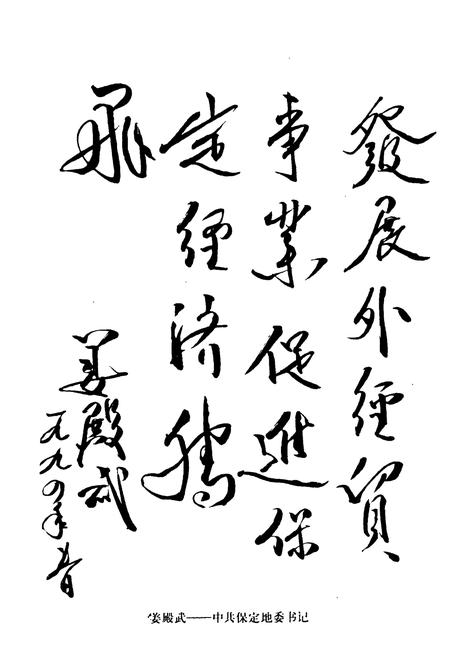 發展外經貿
事業促進保
定經济騰
飛
姜殿武
一九九四年春
姜殿武——中共保定地委书记